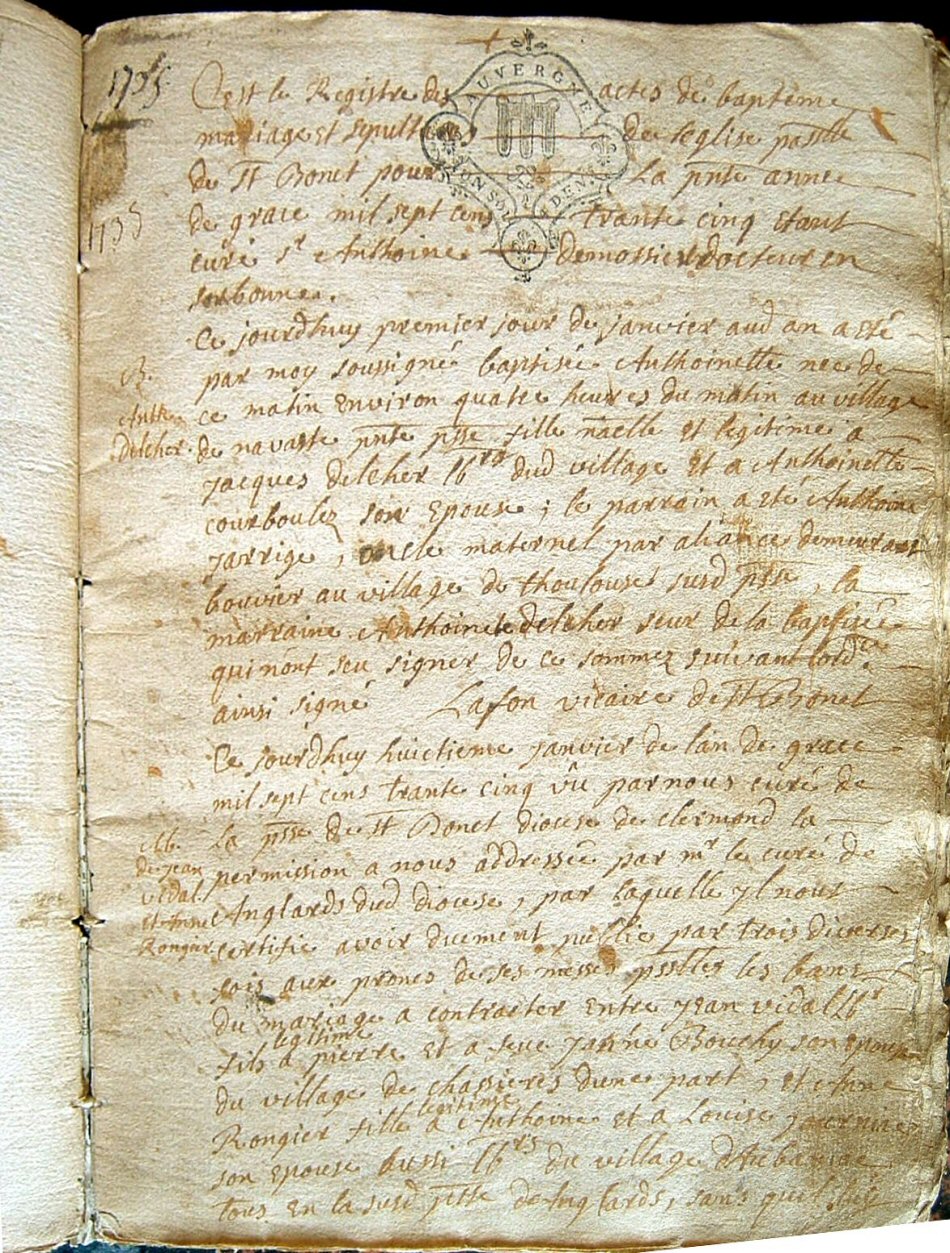 1735
C'est le Registre des actes de baptême
mariage et sepultures de l'église psslle
de St Bonet pour La pnte année
de grace mil sept cens trante cinq Etant
1735
curé sr Anthoine demossier docteur en
sorbonne.
AUVERGNE
UN SOL
DEN.
Ce jourdhuy premier jour de janvier aud an a eté
par moy soussigné baptisée Anthoinette née de
B.
Anth.
Delcher.
ce matin Environ quatre heures du matin au village
de navaste pnte psse fille nãelle et legitime a
jacques delcher lbrs dud village Et a Anthoinette
courboulez son Epouse ; le parrain a eté Anthoine
jarrige, oncle maternel par aliance demeurant
bouvier au village de thoulouse susd psse, la
marraine Anthoinete delcher seur de la baptisée
qui nont seu signer de ce sommez suivant lord.ce
ainsi signé Lafon vicaire de St Bonet
Ce jourdhuy huictieme janvier de lan de grace
mil sept cens trante cinq vû par nous curé de
M.
de jean
vidal
et Anne
Rongier
La psse de St Bonet diocese de clermond la
permission a nous addressée par mr le curé de
Anglards dud diocese, par laquelle yl nous
certifie avoir duement publié par trois diverses
fois aux prones de ses messes psslles les bans
du mariage a contracter Entre jean vidal lbr
legitime
fils a pierre Et a feue janne Bouchy son epouse
du village de chassieres dune part, et Anne
legitime
Rongier fille a Anthoine et a Louise
son Epouse aussi lbrs du village
tous En la susd psse de Anglards, sans quil